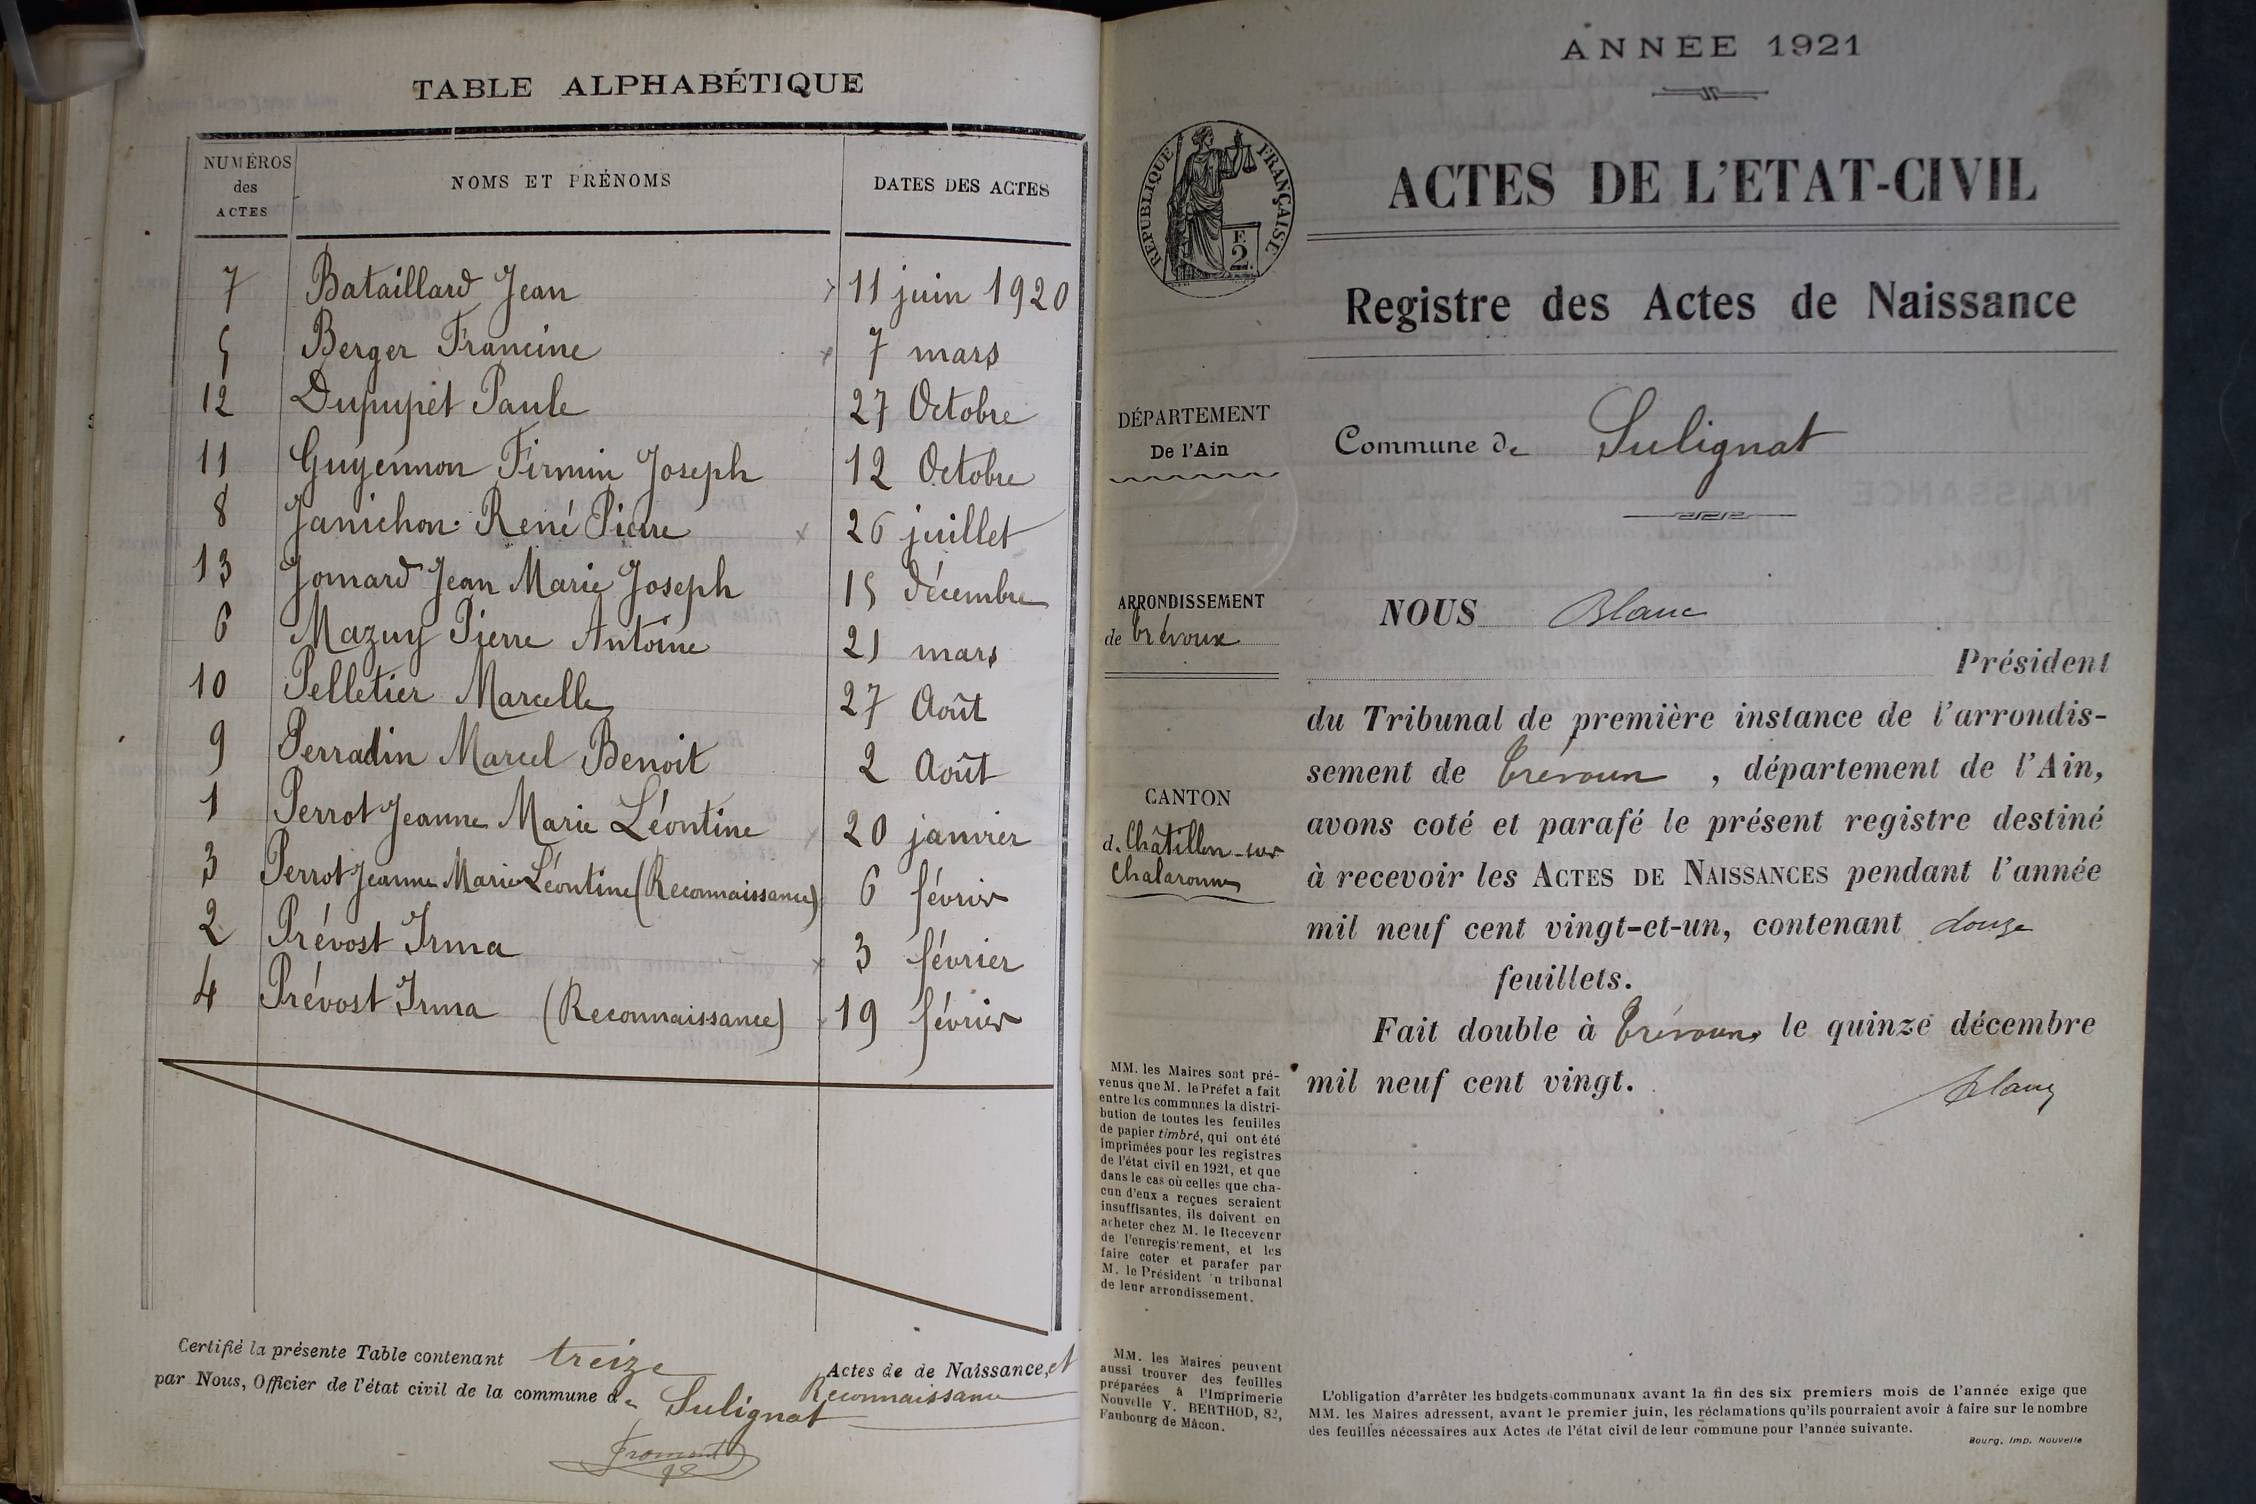 TABLE ALPHABÉTIQUE
NUMÉROS des ACTES NOMS ET PRÉNOMS DATES DES ACTES
7 Bataillard Jean 11 juin 1920
5 Berger Francine 7 mars
12 Dupupet Paule 27 Octobre
11 Guyennon Firmin Joseph 12 Octobre
8 Janichon René Pierre 26 juillet
13 Jomard Jean Marie Joseph 15 décembre
6 Mazuy Pierre Antoine 21 mars
10 Pelletier Marcelle 27 Août
9 Perradin Marcel Benoit 2 Août
1 Perrot Jeanne Marie Léontine 20 janvier
3 Perrot Jeanne Marie Léontine (Reconnaissance) 6 février
2 Prévost Irma 3 février
4 Prévost Irma (Reconnaissance) 19 février
Certifié la présente Table contenant treize Actes de de Naissance, et
Reconnaissance
par Nous, Officier de l'état civil de la commune de Sulignat
ANNÉE 1921
RÉPUBLIQUE FRANÇAISE
F.
2.
ACTES DE L'ETAT-CIVIL
Registre des Actes de Naissance
DÉPARTEMENT
De l'Ain
Commune de Sulignat
ARRONDISSEMENT
de Trévoux
CANTON
de Châtillon-sur
Chalaronne
NOUS Blanc
Président
du Tribunal de première instance de l'arrondis-
sement de Trévoux, département de l'Ain,
avons coté et parafé le présent registre destiné
à recevoir les ACTES DE NAISSANCES pendant l'année
mil neuf cent vingt-et-un, contenant douze
feuillets.
Fait double à Trévoux, le quinze décembre
mil neuf cent vingt.
Blanc
MM. les Maires sont pré-
venus que M. le Préfet a fait
entre les communes la distri-
bution de toutes les feuilles
de papier timbré, qui ont été
imprimées pour les registres
de l'état civil en 1921, et que
dans le cas où celles que cha-
cun d'eux a reçues seraient
insuffisantes, ils doivent en
acheter chez M. le Receveur
de l'enregis'rement, et les
faire coter et parafer par
M. le Président 'n tribunal
de leur arrondissement.
MM. les Maires peuvent
aussi trouver des feuilles
préparées à l'Imprimerie
Nouvelle V. BERTHOD, 82,
Faubourg de Mâcon.
L'obligation d'arrêter les budgets communaux avant la fin des six premiers mois de l'année exige que
MM. les Maires adressent, avant le premier juin, les réclamations qu'ils pourraient avoir à faire sur le nombre
des feuilles nécessaires aux Actes de l'état civil de leur commune pour l'année suivante.
Bourg, Imp. Nouvelle